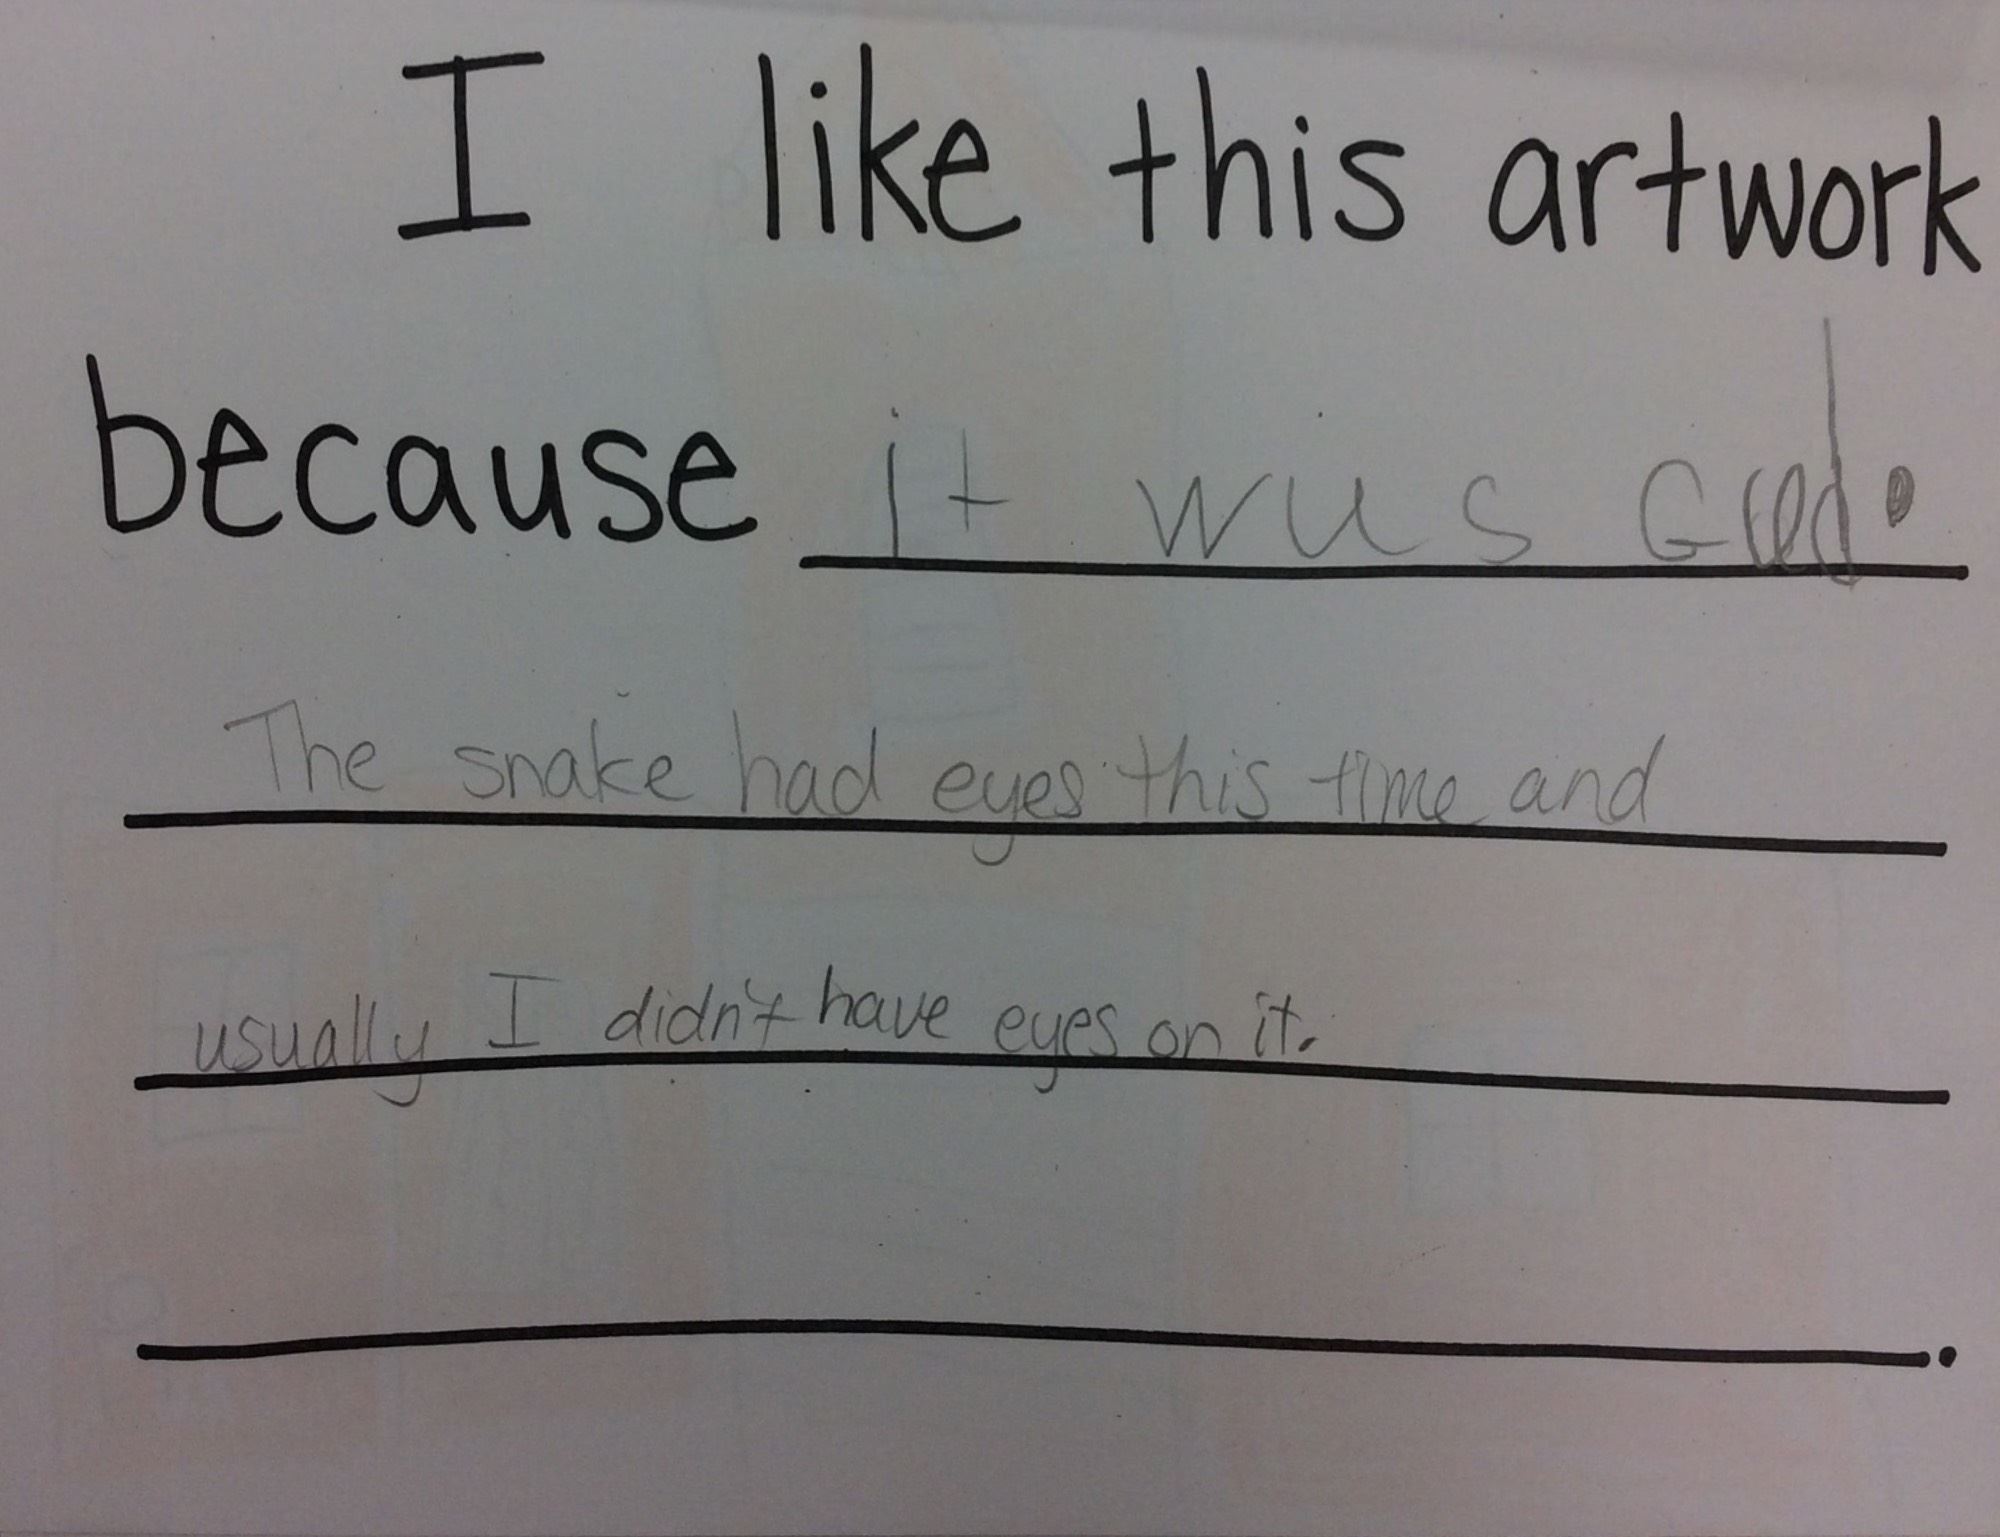 I like this artwork
because it wus
The snake had eyes this time and
usually I didn't have eyes on it.
.